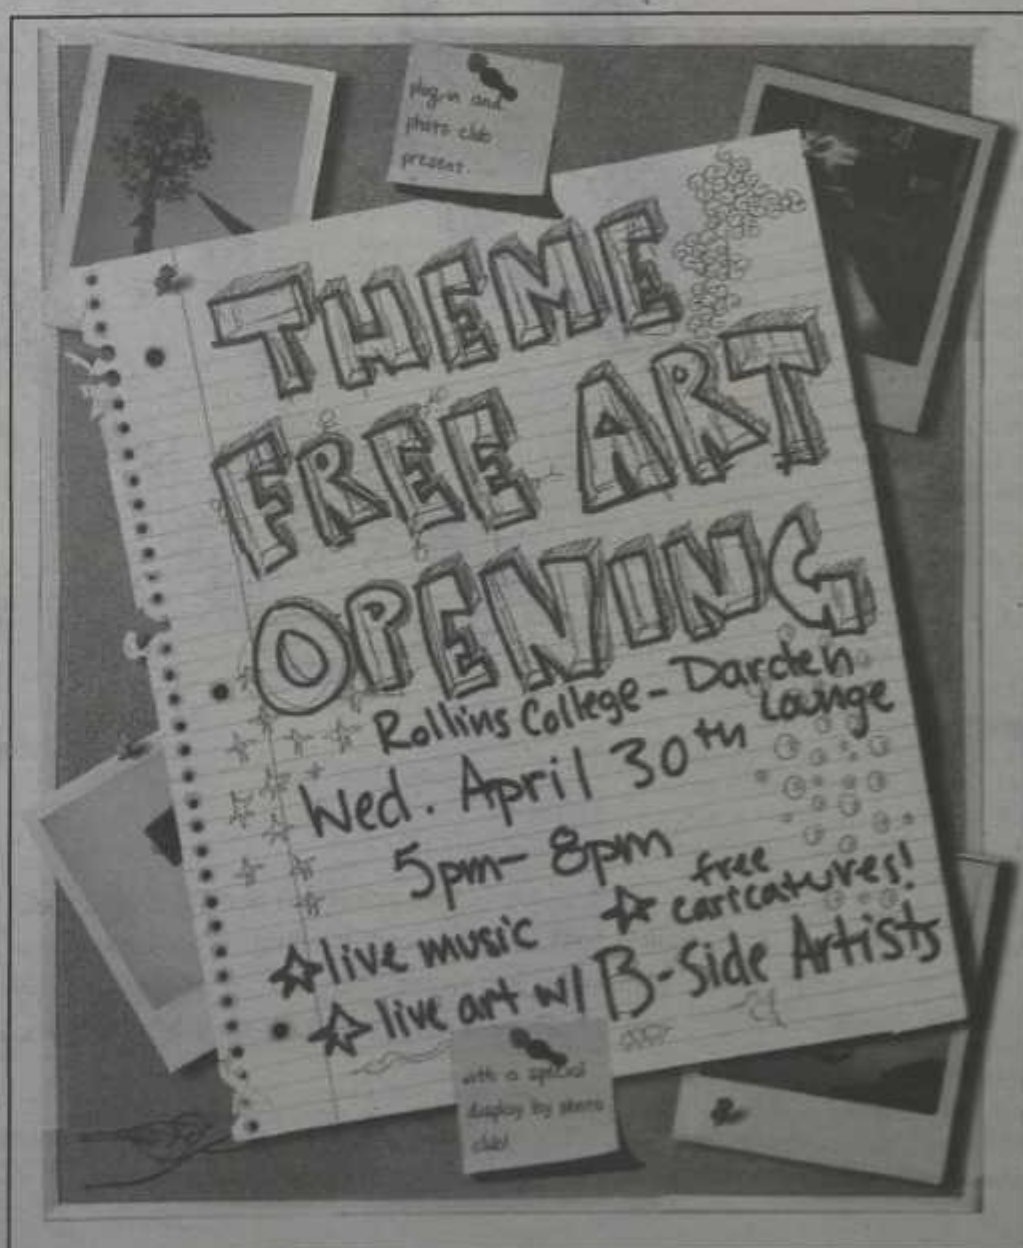 plug-in and
photo club
present...
THEME
FREE ART
OPENING
Rollins College - Darden
Lounge
Wed. April 30th
5pm - 8pm
☆ live music
☆ free
caricatures!
☆ live art w/ B-Side Artists
with a special
display by
club!